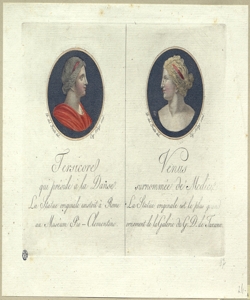 Tersicore
qui préside à la Danse
La Statue originale existoit à Rome
au Muséum Pio-Clementin
Venus
surnommée de Medicis
La Statue originale est le plus grand
ornement de la Galerie du G. D. de Toscane